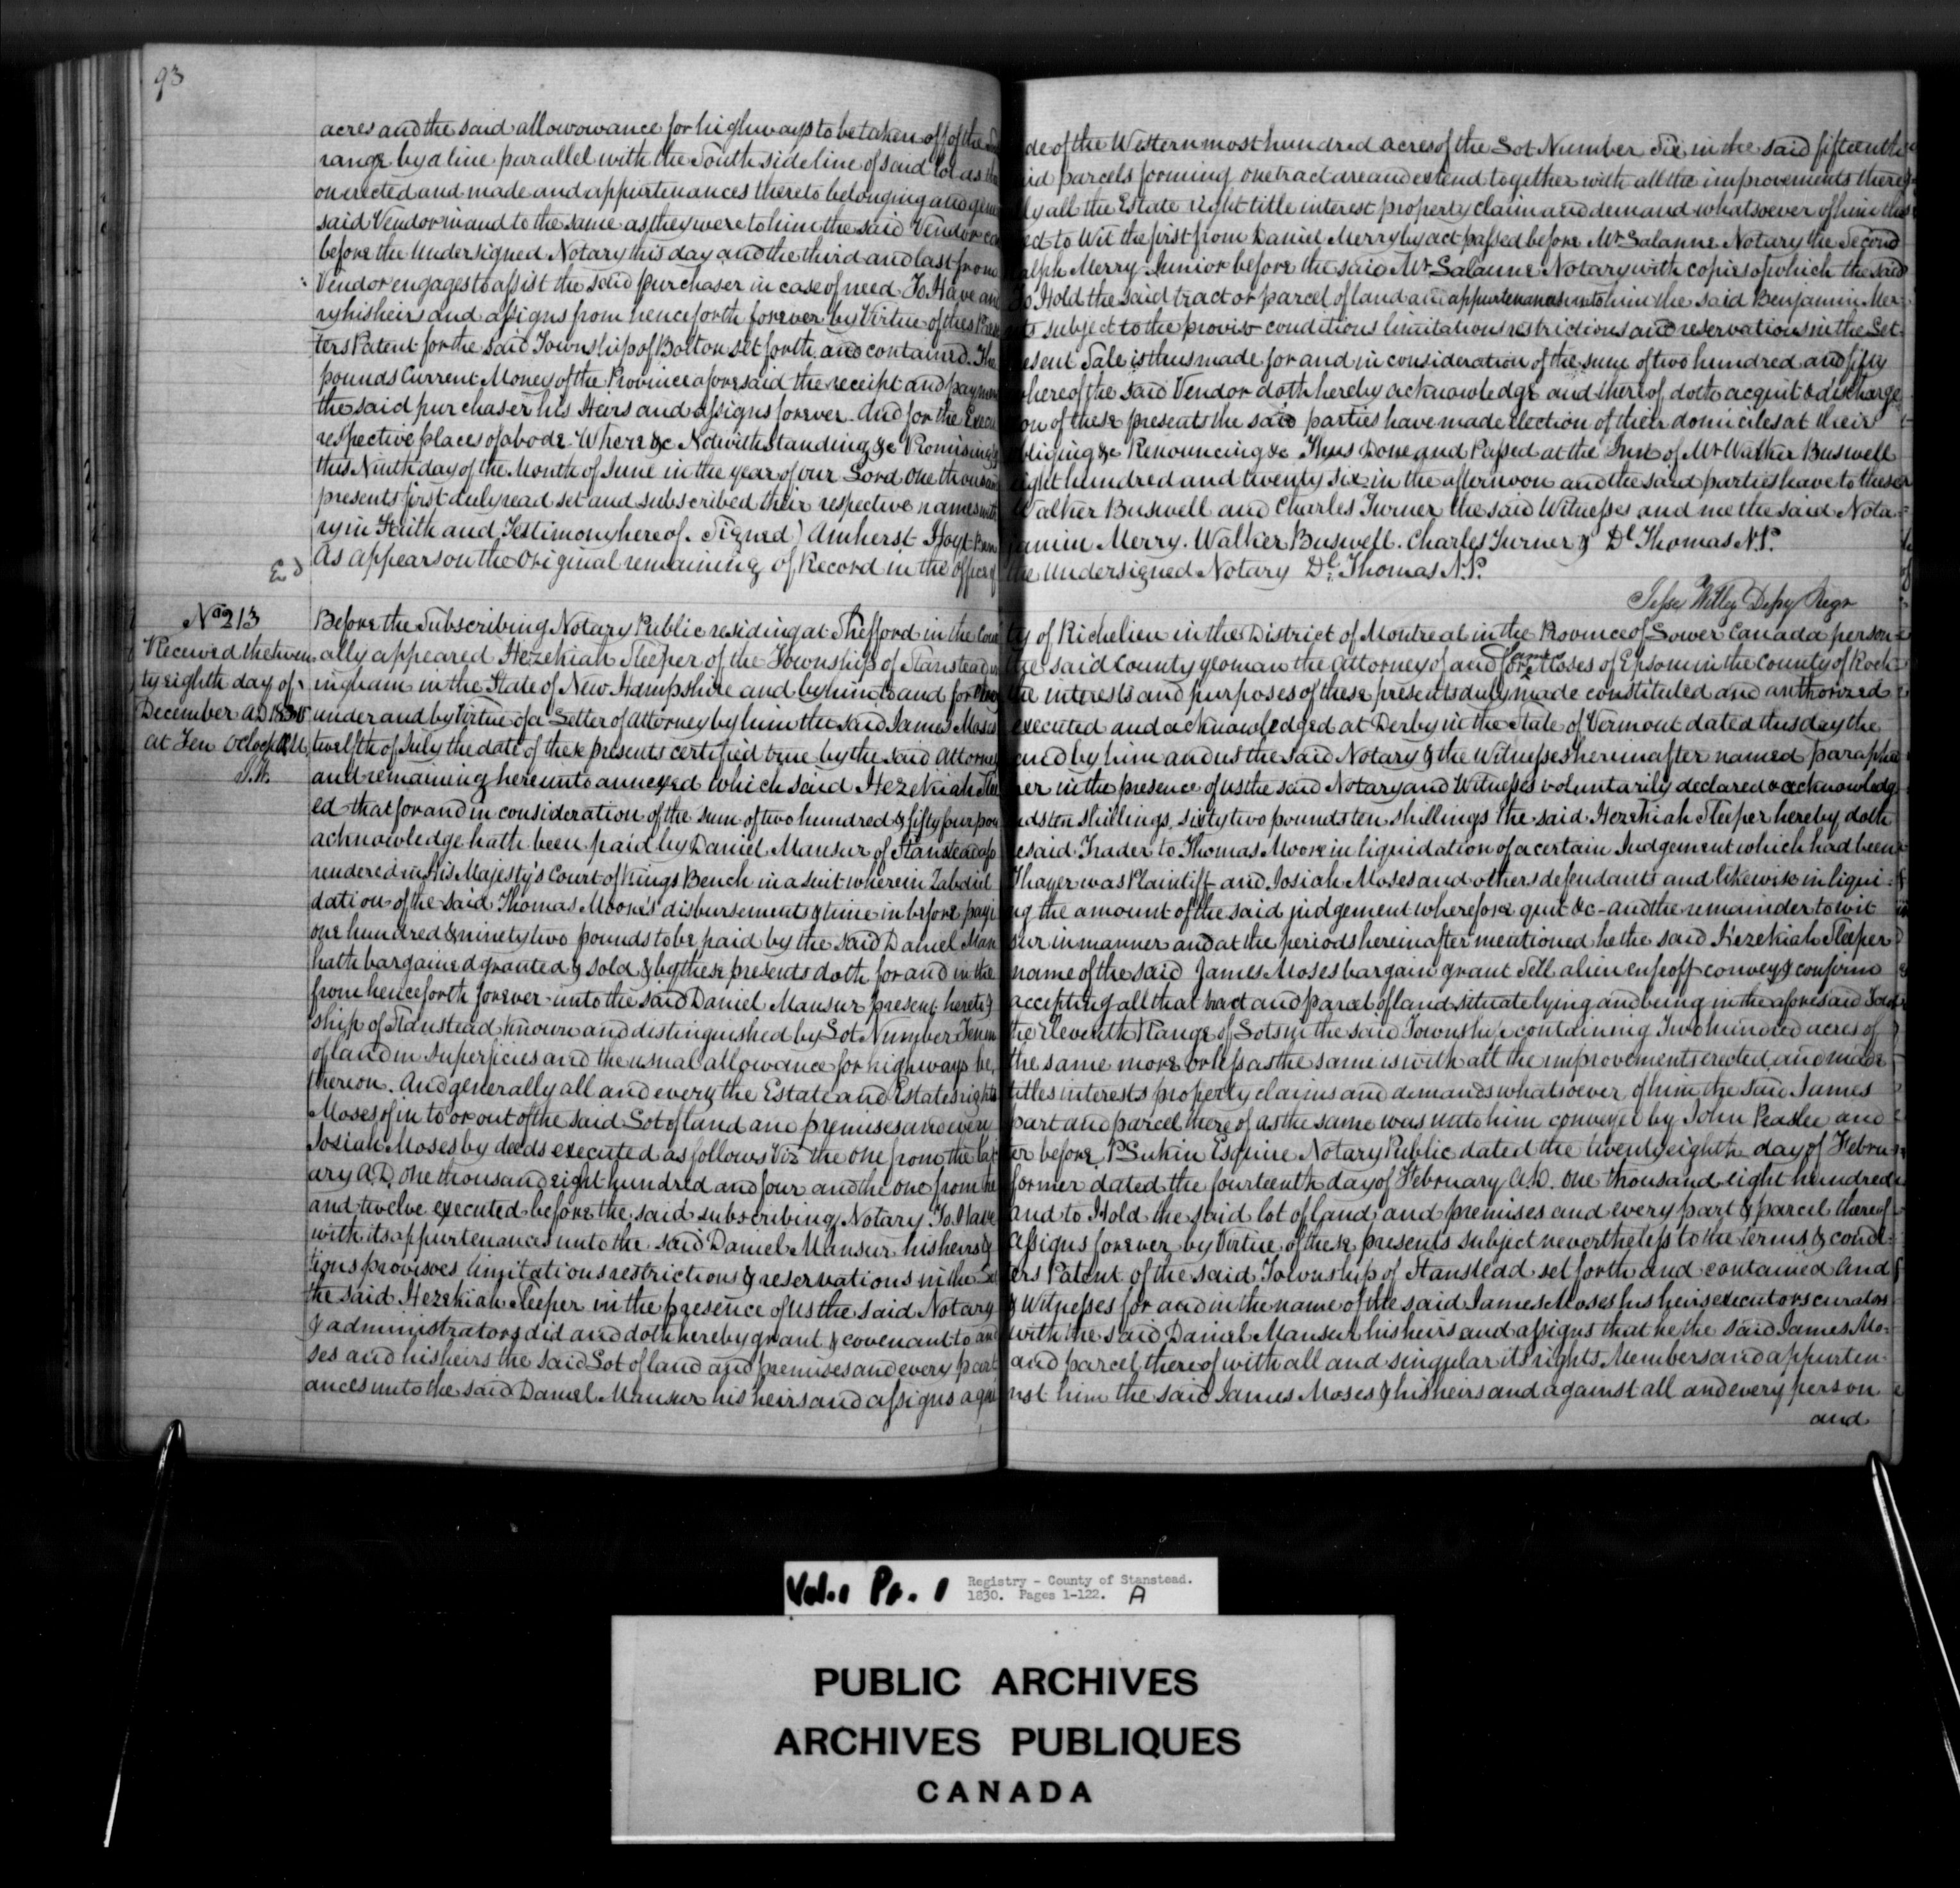 93
acres and the said allowowance for highways to be taken off of the
range by a line parallel with the South side line of said lot as
on erected and made and appurtenances thereto belonging and gene
said Vendor in and to the same as they were to him the said Vendor co
before the Undersigned Notary this day and the third and last from
Vendor engages to assist the said purchaser in case of need To Have and
ry his heirs and assigns from henceforth forever by Virtue of these Pres
ters Patent for the said Township of Bolton set forth and contained. The
pounds Current Money of the Province aforesaid the receipt and paymen
the said purchaser his Heirs and assigns forever. And for the Execu
respective places of abode. Where &c Notwithstanding &c Promising
this Ninth day of the Month of June in the year of our Lord One thousan
presents first duly read set and subscribed their respective names with
ry in Faith and Testimony hereof. Signed) Amherst Hoyt Ben
As appears on the Original remaining of Record in the office of
Ed
No 213
Received the twen
ty eighth day of
December AD 1830
at Ten Oclock A.M.
J.W.
Before the Subscribing Notary Public residing at Shefford in the Coun
ally appeared Hezekiah Sleeper of the Township of Stanstead in
ingham in the State of New Hampshire and by him to and for
under and by Virtue of a Letter of Attorney by him the said James Moses
twelfth of July the date of these presents certified true by the said Attorney
and remaining hereunto annexed which said Hezekiah Slee
ed that for and in consideration of the sum of two hundred & fifty four pou
acknowledge hath been paid by Daniel Mansur of Stanstead afo
rendered in His Majesty's Court of Kings Bench in a suit wherein Zabdiel
dation of the said Thomas Moore's disbursements & time in before payi
one hundred & ninety two pounds to be paid by the said Daniel Man
hath bargained granted & sold & by these presents doth for and in the
from henceforth forever unto the said Daniel Mansur present hereto &
ship of Stanstead known and distinguished by Lot Number Ten in
of land in Superficies and the usual allowance for highways be
thereon. And generally all and every the Estate and Estates rights
Moses of in to or out of the said Lot of land and premises and every
Josiah Moses by deeds executed as follows Viz the one from the lat
ary A.D. One thousand eight hundred and four and the one from he
and twelve executed before the said subscribing Notary To Have
with its appurtenances unto the said Daniel Mansur his heirs &
tions provisoes limitations restrictions & reservations in the Let
the said Hezekiah Sleeper in the presence of us the said Notary
& administrators did and doth hereby grant & covenant to and
ses and his heirs the said Lot of land and premises and every part
ances unto the said Daniel Mansur his heirs and assigns agai
de of the Westernmost hundred acres of the Lot Number Six in the said fifteenth
id parcels forming one tract are and extend together with all the improvements there
lly all the Estate right title interest property claim and demand whatsoever of him the
ed to Wit the first from Daniel Merry by act passed before Mr Lalanne Notary the Second
Ralph Merry Junior before the said Mr Lalanne Notary with copies of which the said
To Hold the said tract or parcel of land and appurtenances unto him the said Benjamin Mer
nts subject to the proviso conditions limitations restrictions and reservations in the Let
esent Sale is thus made for and in consideration of the sum of two hundred and fifty
whereof the said Vendor doth hereby acknowledge and thereof doth acquit & discharge
on of these presents the said parties have made election of their domiciles at their
obliging &c Renouncing &c Thus Done and Passed at the Inn of Mr Walker Buswell
eight hundred and twenty six in the afternoon and the said parties have to these
Walker Buswell and Charles Turner the said Witnesses and me the said Nota
jamin Merry. Walker Buswell. Charles Turner & Dl Thomas N.P.
the Undersigned Notary Dl Thomas N.P.
Jesse Willey Depy Regr
ty of Richelieu in the District of Montreal in the Province of Lower Canada person
the said County yeoman the Attorney of and for James Moses of Epsom in the County of Rock
the interests and purposes of these presents duly made constituted and authorized
executed and acknowledged at Derby in the State of Vermont dated this day the
and by him and us the said Notary & the Witnesses hereinafter named paraphed
per in the presence of us the said Notary and Witnesses voluntarily declared & acknowledg
nds ten shillings, sixty two pounds ten shillings the said Hezekiah Sleeper hereby doth
esaid Trader to Thomas Moore in liquidation of a certain Judgement which had been
Thayer was Plaintiff and Josiah Moses and others defendants and likewise in liqui
ng the amount of the said judgement wherefore quit &c - and the remainder to wit
sur in manner and at the periods hereinafter mentioned he the said Hezekiah Sleeper
name of the said James Moses bargain grant Sell alien enfeoff convey & confirm
accepting all that tract and parcel of land situate lying and being in the aforesaid Town
the Eleventh Range of Lots in the said Township containing Two hundred acres of
the same more or less as the same is with all the improvements erected and made
titles interests property claims and demands whatsoever of him the said James
part and parcel thereof as the same was unto him conveyed by John Peaslee and
er before P Lukin Esquire Notary Public dated the twenty eighth day of Febru
former dated the fourteenth day of February A.D. One thousand eight hundred
and to Hold the said lot of land and premises and every part & parcel thereof
Assigns forever by Virtue of these presents subject nevertheless to the terms & condi
ters Patent of the said Township of Stanstead set forth and contained And
& Witnesses for and in the name of the said James Moses his heirs executors curators
with the said Daniel Mansur his heirs and assigns that he the said James Mo-
and parcel thereof with all and singular its rights Members and appurten
nst him the said James Moses & his heirs and against all and every person
and
Vol. 1 Pt. 1
Registry - County of Stanstead.
1830. Pages 1-122. A
PUBLIC ARCHIVES
ARCHIVES PUBLIQUES
CANADA